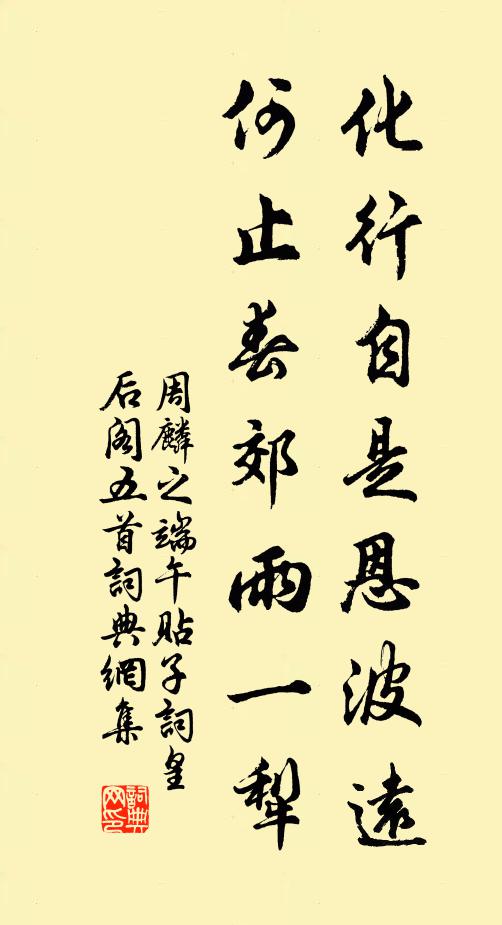 化行自是恩波遠
何止春郊雨一犁
周麟之端午貼子詞皇
后阁五首詞典網集
詞典
网印